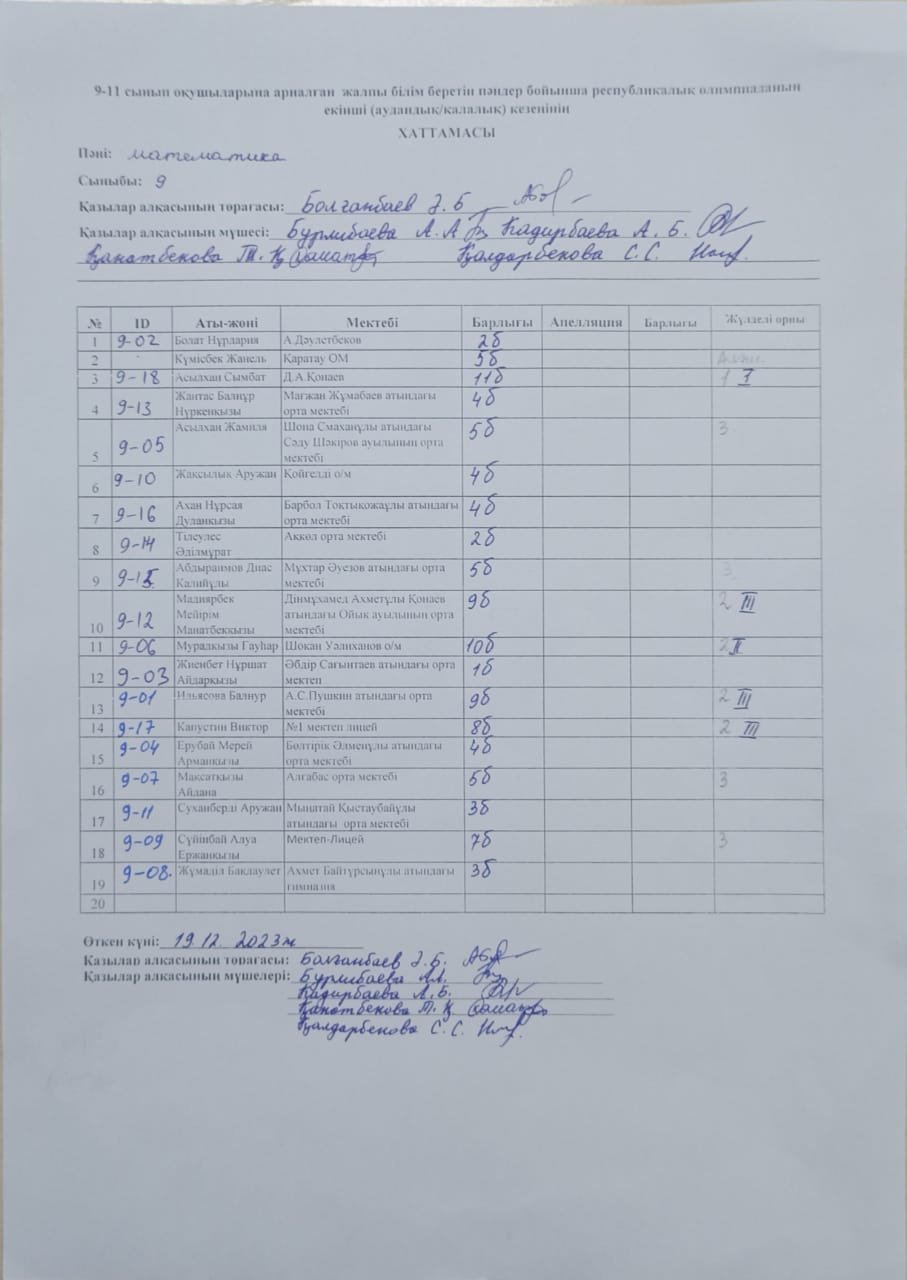 9-11 сынып оқушыларына арналған жалпы білім беретін пәндер бойынша республикалық олимпиаданың
екінші (аудандық/қалалық) кезеңінің
ХАТТАМАСЫ
Пәні: математика
Сыныбы: 9
Қазылар алқасының төрағасы: Болғанбаев Ә.Б
Қазылар алқасының мүшесі: Бурлибаева А.А Кадирбаева А.Б.
Қанатбекова Т.Қ Қалдарбекова С.С.
№ ID Аты-жөні Мектебі Барлығы Апелляция Барлығы Жүлделі орны
1 9-02 Болат Нұрдария А.Дәулетбеков 2б
2 Күмісбек Жанель Қаратау ОМ 5б
3 9-18 Асылхан Сымбат Д.А.Қонаев 11б 1 I
4 9-13 Жантас Балнұр Нүркенқызы Мағжан Жұмабаев атындағы орта мектебі 4б
5 9-05 Асылхан Жамиля Шона Смаханұлы атындағы Сәду Шәкіров ауылының орта мектебі 5б 3
6 9-10 Жақсылық Аружан Қойгелді о/м 4б
7 9-16 Ахан Нұрсая Дуланқызы Барбол Тоқтықожаұлы атындағы орта мектебі 4б
8 9-14 Тілеулес Әділмұрат Аккөл орта мектебі 2б
9 9-15 Абдыраимов Диас Калийұлы Мұхтар Әуезов атындағы орта мектебі 5б 3
10 9-12 Мадиярбек Мейірім Манатбекқызы Дінмұхамед Ахметұлы Қонаев атындағы Ойық ауылының орта мектебі 9б 2 III
11 9-06 Мурадқызы Гауһар Шоқан Уәлиханов о/м 10б 2 II
12 9-03 Жиенбет Нұршат Айдарқызы Әбдір Сағынтаев атындағы орта мектеп 1б
13 9-01 Ильясова Балнур А.С.Пушкин атындағы орта мектебі 9б 2 III
14 9-17 Капустин Виктор №1 мектеп лицей 8б 2 III
15 9-04 Ерубай Мерей Арманқызы Бөлтірік Әлменұлы атындағы орта мектебі 4б
16 9-07 Мақсатқызы Айдана Алғабас орта мектебі 5б 3
17 9-11 Суханберді Аружан Мыңатай Қыстаубайұлы атындағы орта мектебі 3б
18 9-09 Сүйінбай Алуа Ержанқызы Мектеп-Лицей 7б 3
19 9-08. Жұмаділ Бақдаулет Ахмет Байтұрсынұлы атындағы гимназия 3б
20
Өткен күні: 19.12. 2023ж
Қазылар алқасының төрағасы: Болғанбаев Ә.Б.
Қазылар алқасының мүшелері: Бурлибаева А.А.
Кадирбаева А.Б.
Қанатбекова Т.Қ.
Қалдарбекова С.С.